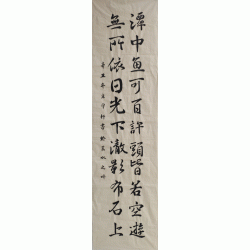 潭中魚可百許頭皆若空遊
無所依日光下澈影布石上